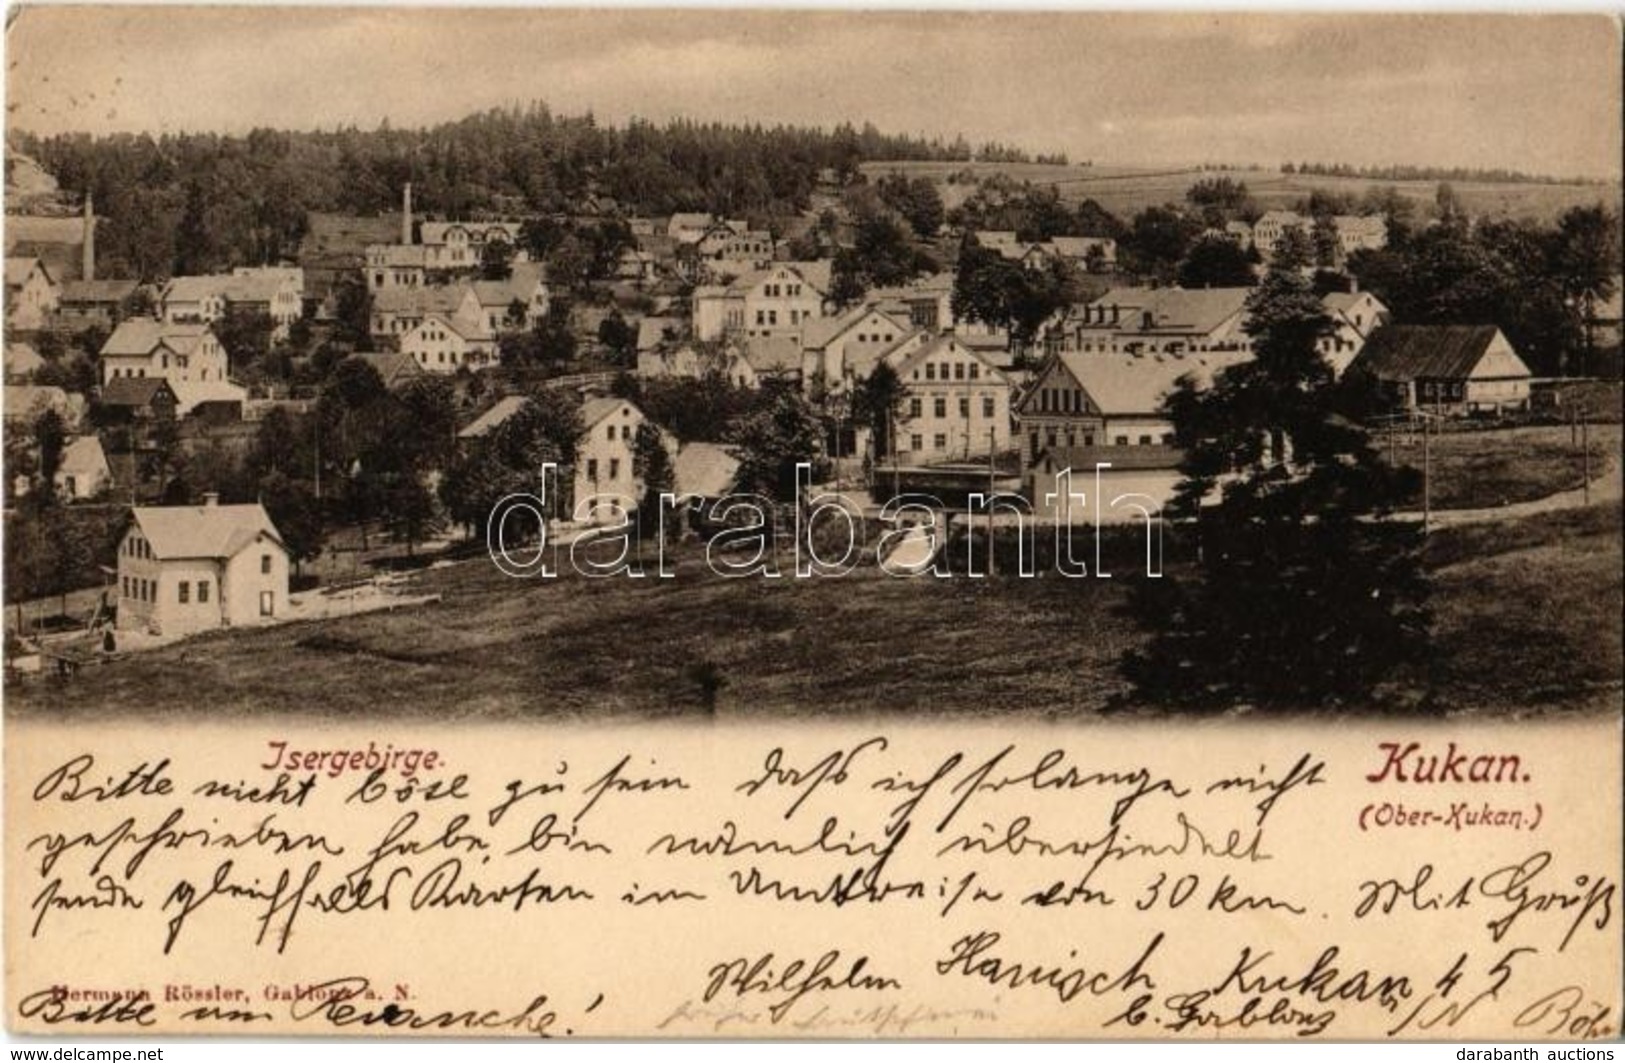 Isergebirge.
Kukan.
(Ober-Kukan.)
Bitte nicht böse zu sein daß ich solange nicht
geschrieben habe, bin nämlich übersiedelt
sende gleichfalls Karten im Umkreise von 30 km. Mit Gruß
Wilhelm Hanisch Kukan 45
b. Gablonz a/N Böh
Hermann Rössler, Gablonz a. N.
Bitte um Revanche!
darabanth
www.delcampe.net
darabanth auctions